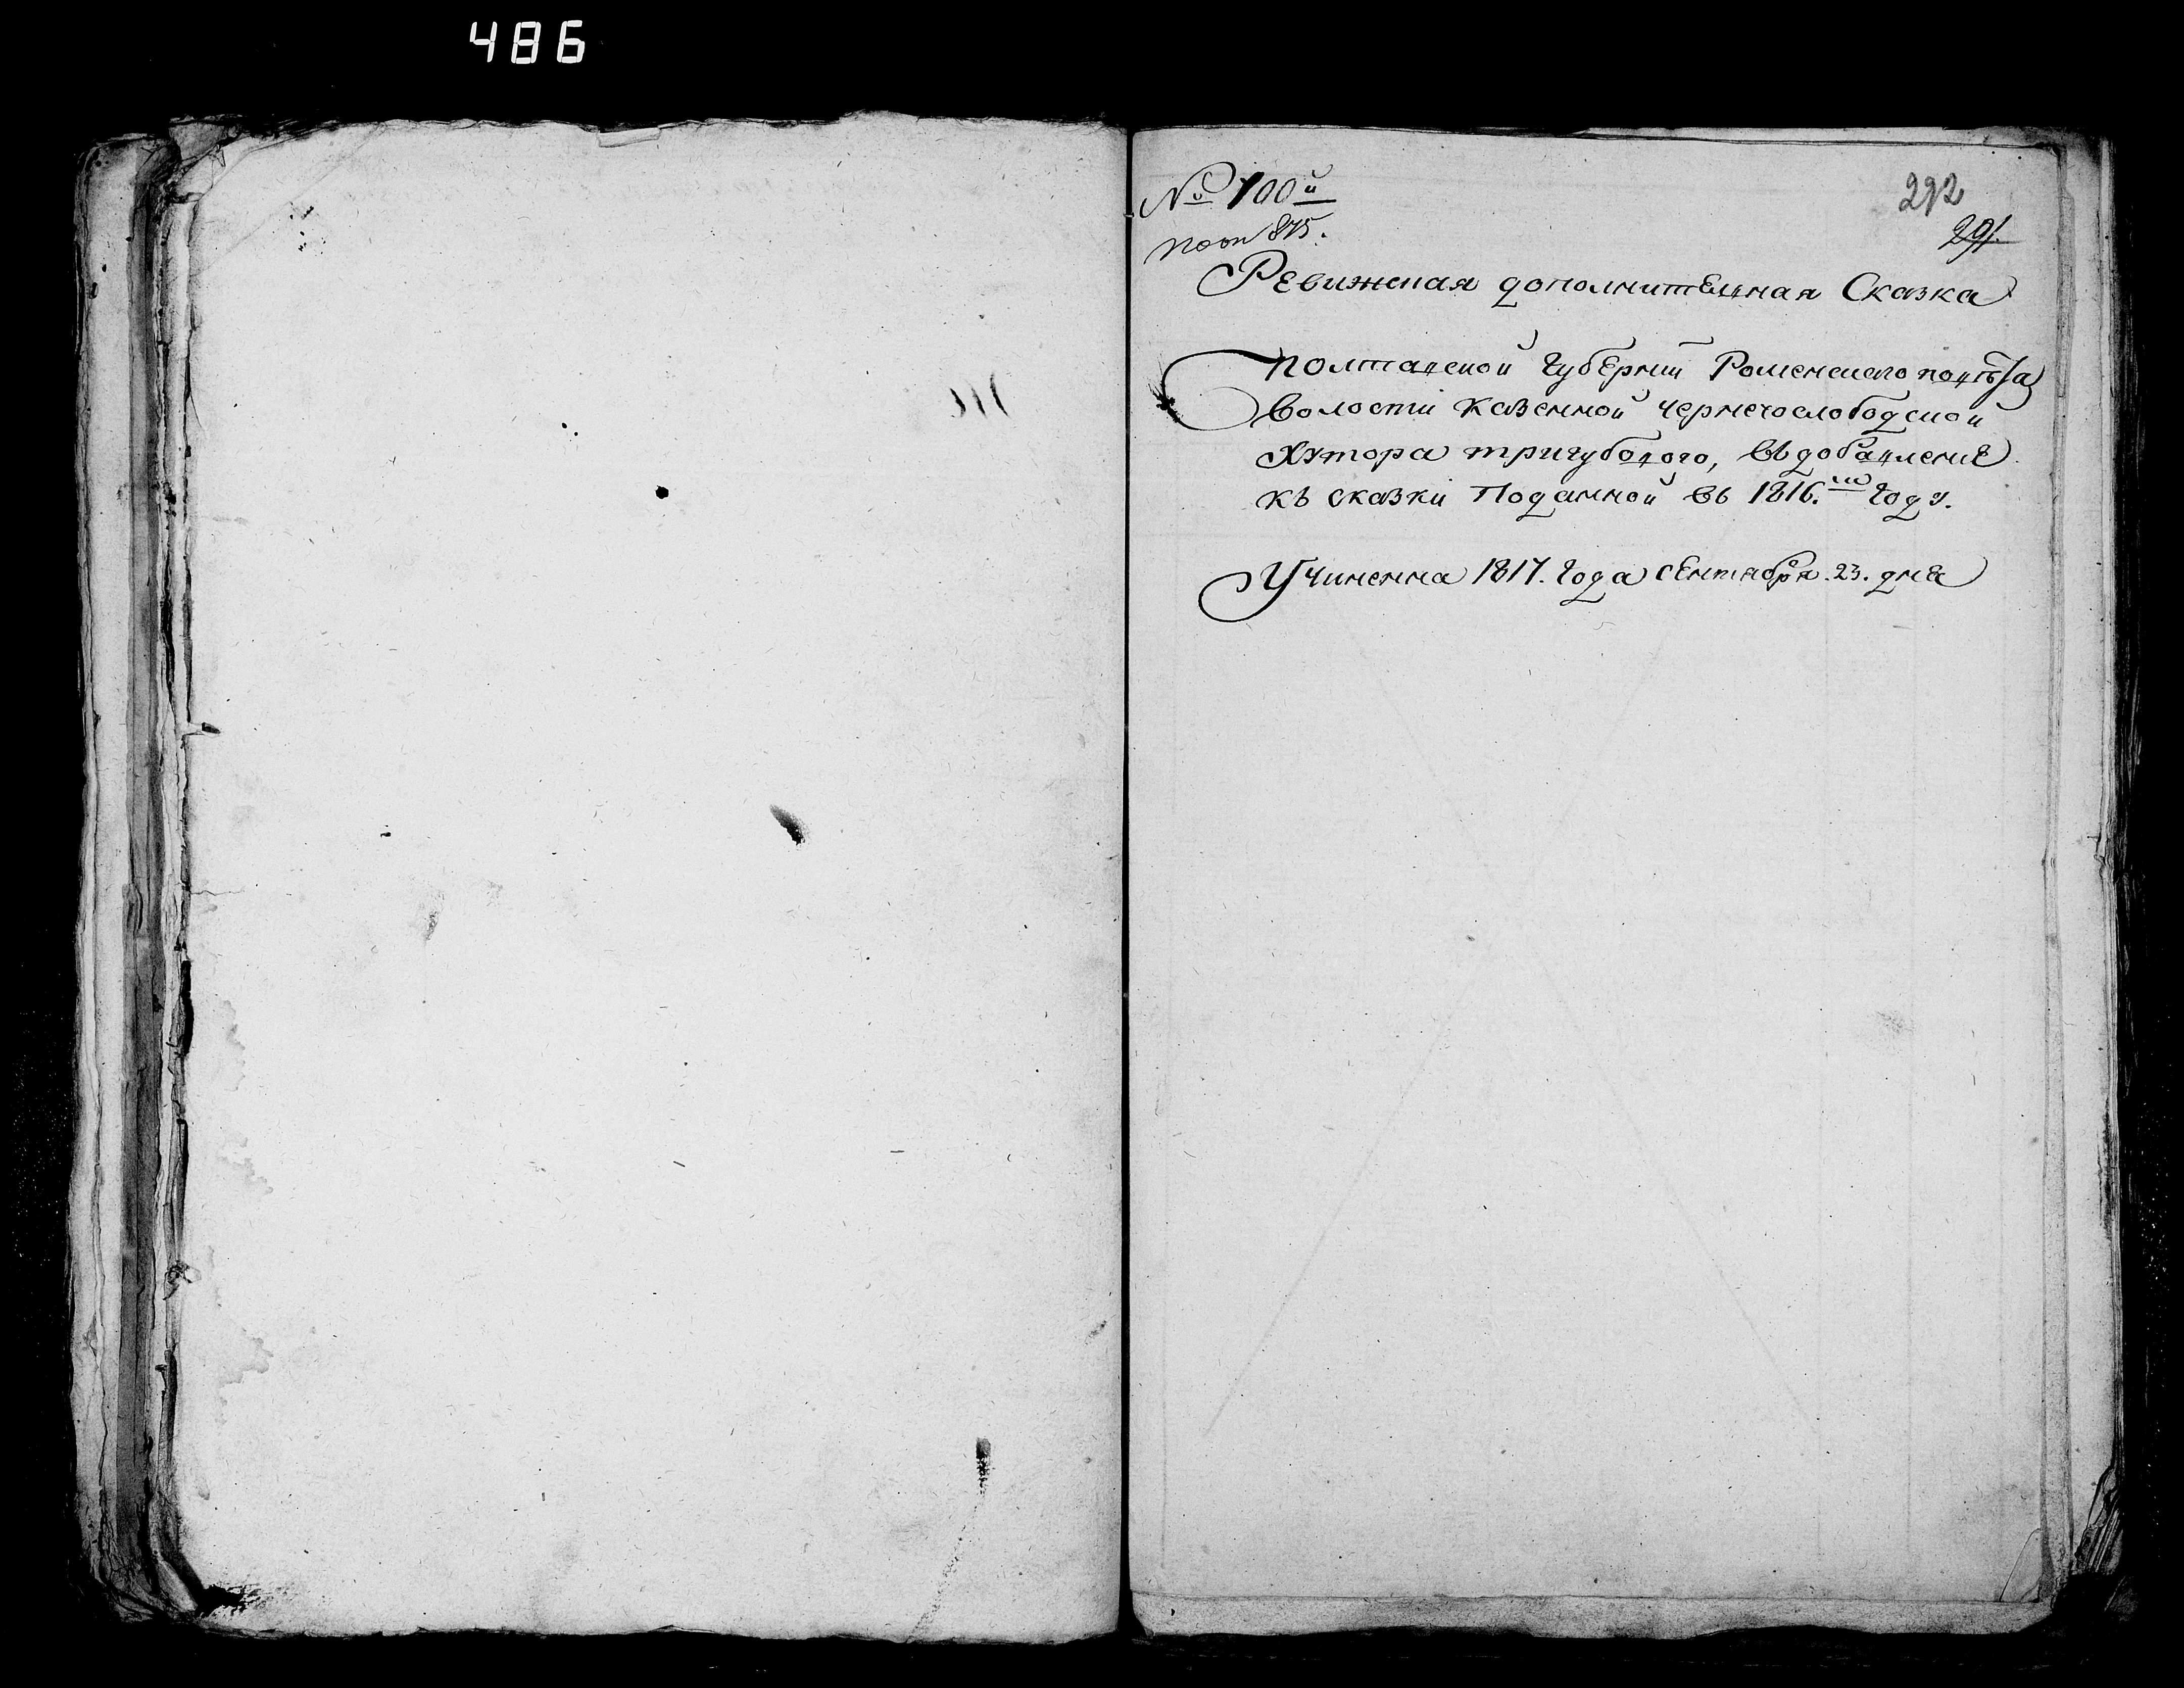 486
№ 100й
292
291.
Ревижская дополнительная Сказка
Полтавской Губернии Роменского повѣта
волости казенной чернечослободской
хутора тригубового, въ добавление
къ сказки Поданной въ 1816.мъ Году.
Учиненна 1817. Года сентября. 23. дня